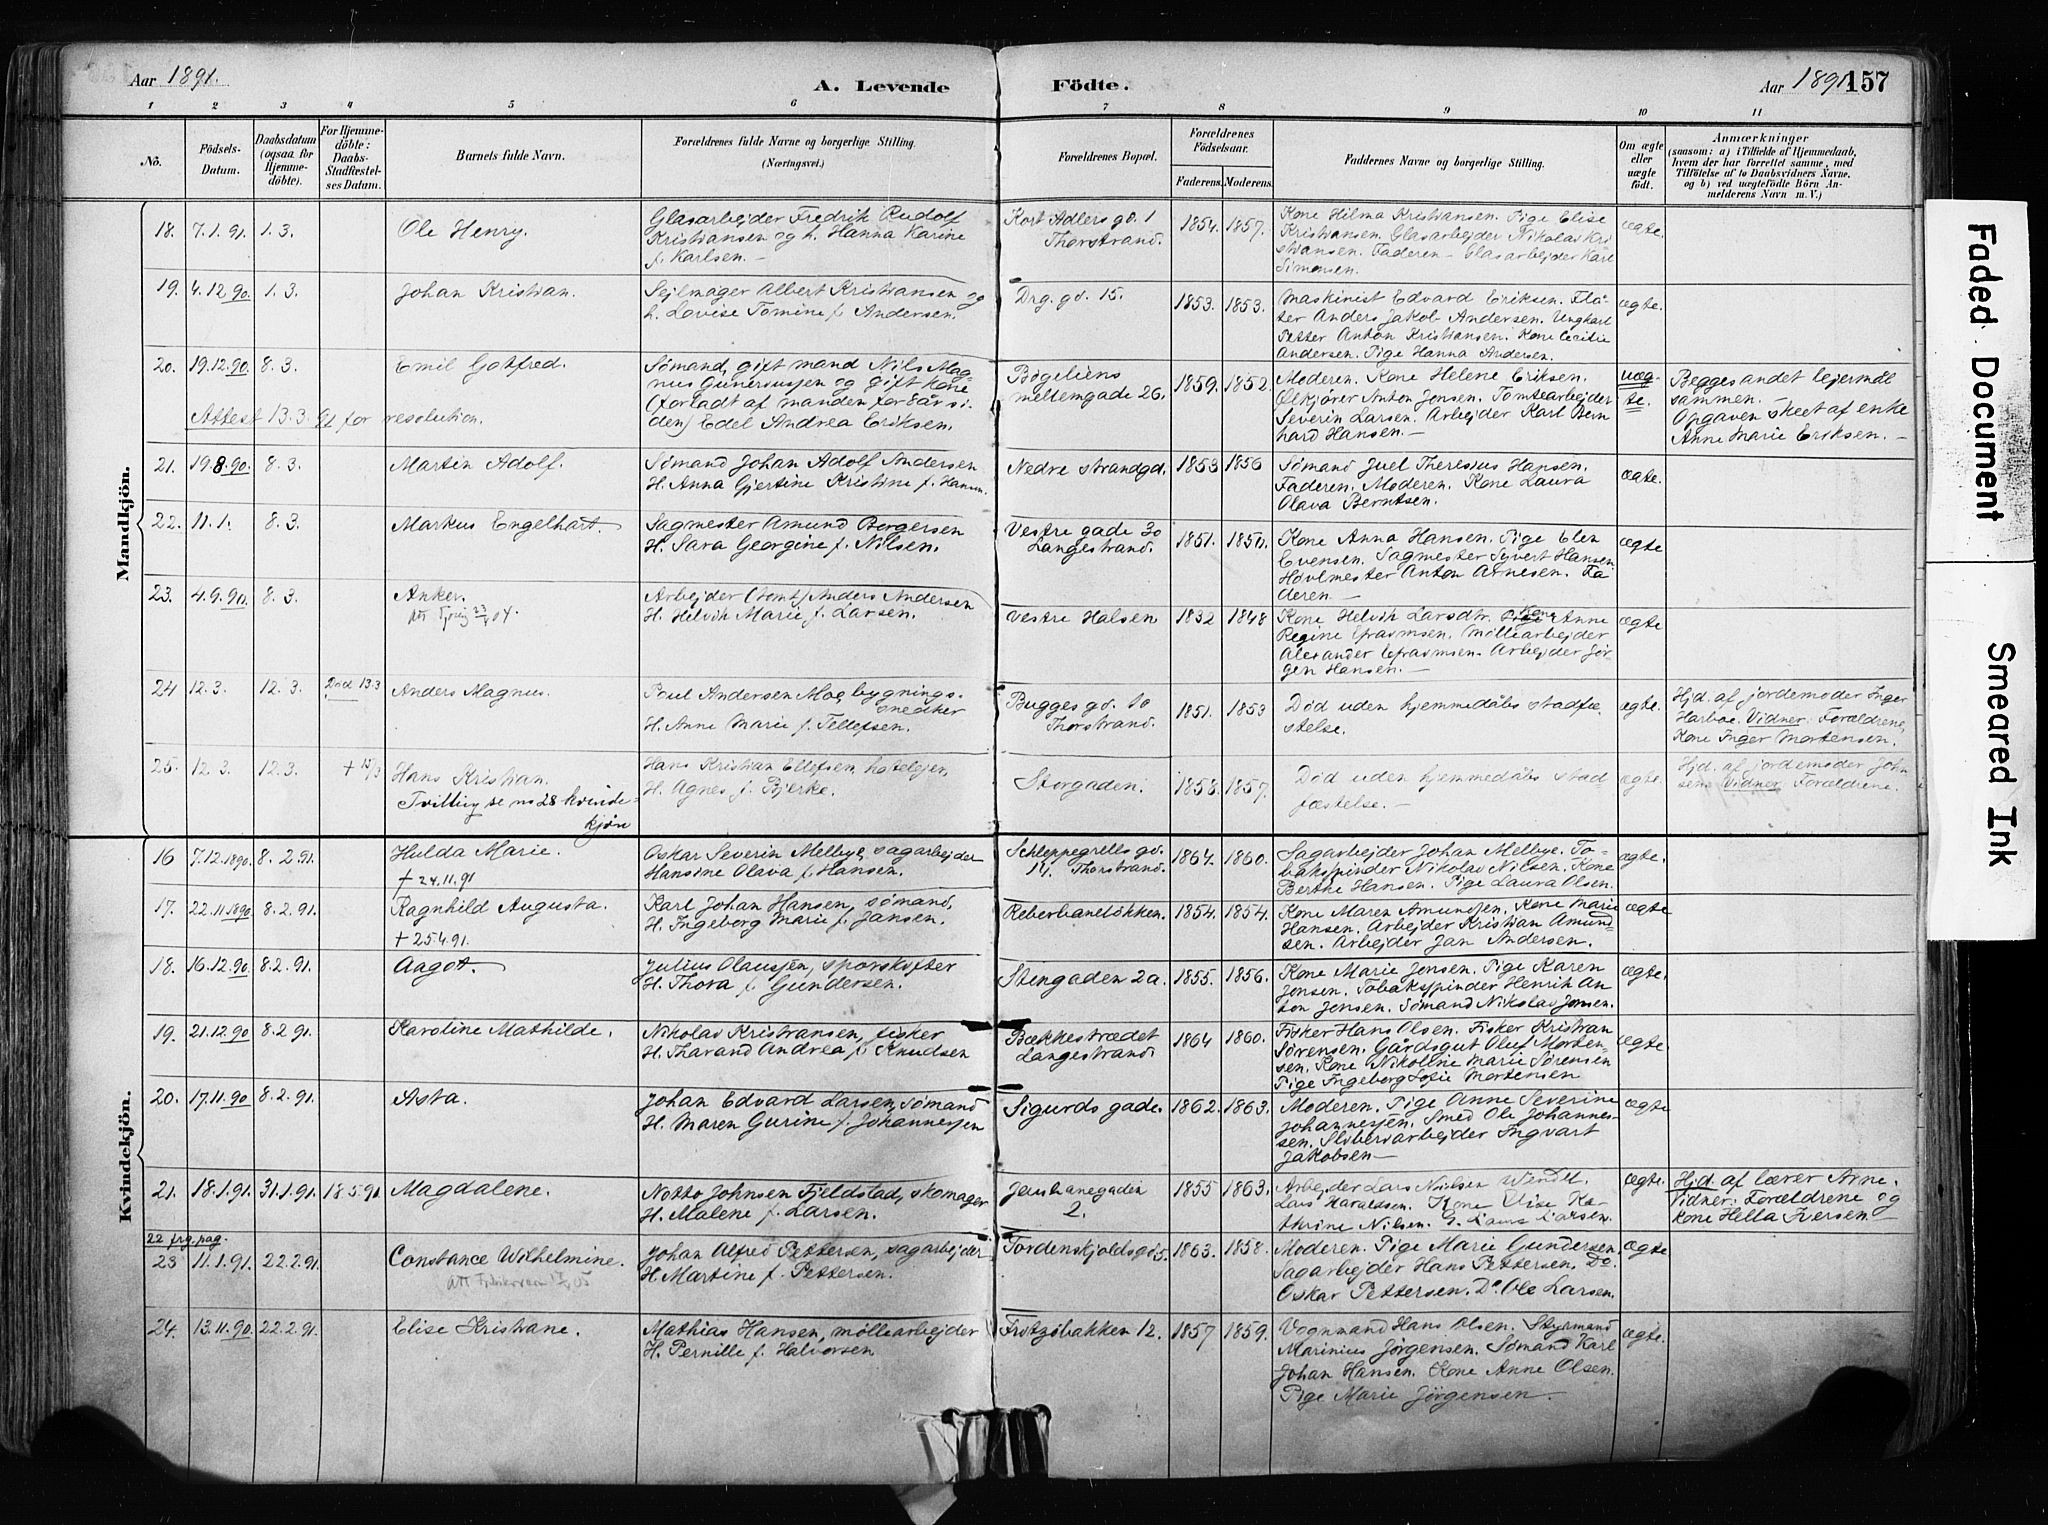 Aar 1891.
A. Levende
Födte.
Aar 1891.
157
1 2 3 4 5 6 7 8 9 10 11
No.
Födsels-
Datum.
Daabsdatum
(ogsaa for
Hjemme-
döbte).
For Hjemme-
döbte:
Daabs-
Stadfæstel-
ses Datum.
Barnets fulde Navn.
Forældrenes fulde Navne og borgerlige Stilling.
(Næringsvei.)
Forældrenes Bopæl.
Forældrenes
Födselsaar.
Faderens.
Moderens.
Faddernes Navne og borgerlige Stilling.
Om ægte
eller
uægte
født.
Anmærkninger
(saasom: a) i Tilfælde af Hjemmedaab,
hvem der har forrettet samme, med
Tilföielse af to Daabsvidners Navne,
og b) ved uægtefödte Börn An-
melderens Navn m. V.)
Mandkjön.
18. 7.1.91. 1.3. Ole Henry.
Glasarbejder Fredrik Rudolf
Kristiansen og h. Hanna Karine
f. Karlsen.
Kort Adlers gd. 1
Thorstrand.
1854. 1857.
Kone Hilma Kristiansen. Pige Elise
Kristiansen. Glasarbejder Nikolai Kri
stiansen. Faderen. Glasarbejder Karl
Simonsen.
ægte.
19. 4.12.90. 1.3. Johan Kristian.
Sejlmager Albert Kristiansen og
h. Lovise Tomine f. Andersen.
Drg. gd. 15.
1853. 1853.
Maskinist Edvard Eriksen.
Anders Jakob Andersen. Ungkarl
Petter Anton Kristiansen. Kone Cecilie
Andersen. Pige Hanna Andersen.
ægte.
20. 19.12.90. 8.3. Emil Gotfred.
Attest 13.3.91 for resolution.
Sømand, gift mand Nils Mag
nus Guneriussen og gift kone
(forladt af manden for 8 år si
den) Edel Andrea Eriksen.
Bøgeliens
mellemgade 26.
1859. 1852.
Moderen. Kone Helene Eriksen.
Ølkjører Anton Jensen. Tomtearbejder
Severin Larsen. Arbejder Karl Bern
hard Hansen.
uæg-
te.
Begges andet lejermål
sammen.
Opgaven skeet af enke
Anne Marie Eriksen.
21. 19.8.90. 8.3. Martin Adolf.
Sømand Johan Adolf Andersen
H. Anna Gjertine Kristine f. Hansen.
Nedre strandgd.
1853 1856
Sømand Juel Theresius Hansen.
Faderen. Moderen. Kone Laura
Olava Berntsen.
ægte.
22. 11.1. 8.3. Markus Engelhart
Sagmester Amund Børgersen
H. Sara Georgine f. Nilsen.
Vestre gade 30
Langestrand.
1851. 1850.
Kone Anna Hansen. Pige Elen
Evensen. Sagmester Syvert Hansen
Høvlmester Anton Arnesen. Fa
deren
ægte
23. 4.9.90. 8.3. Anker.
Arbejder (tomt) Anders Andersen
H. Helvih Marie f. Larsen.
Vestre Halsen
1832 1848
Kone Helvih Larsdtr. Kone Anne
Regine Efraimsen. Møllearbejder
Alexander Efraimsen. Arbejder Jør
gen Hansen.
ægte
24 12.3. 12.3. Død 13.3 Anders Magnus.
Poul Andersen Moe, bygnings-
snedker
H. Anne Marie f. Tellefsen.
Bugges gd. 10
Thorstrand.
1851. 1853
Død uden hjemmedåbs stadfæ
stelse.
ægte.
Hjd. af jordemoder Inger
Harboe. Vidner: Forældrene,
Kone Inger Mortensen.
25. 12.3. 12.3. † 15/3 Hans Kristian.
Tvilling se no 28 kvinde-
kjøn
Hans Kristian Ellefsen hotelejer
H. Agnes f. Bjerke.
Storgaden.
1858. 1857.
Død uden hjemmedåbs stad
fæstelse.
ægte.
Hjd. af jordemoder John
sen. Vidner Forældrene.
Kvindekjön.
16 7.12.1890. 8.2.91. Hulda Marie.
† 24.11.91
Oskar Severin Melbye, sagarbejder
Hansine Olava f. Hansen.
Schleppegrells gd.
14. Thorstrand.
1864. 1860.
Sagarbejder Johan Melbye. To-
bakspinder Nikolai Nilsen. Kone
Berthe Hansen. Pige Laura Olsen.
ægte.
17. 22.11.1890. 8.2.91. Ragnhild Augusta.
† 25.4.91.
Karl Johan Hansen, sømand
H. Ingeborg Marie f. Jansen.
Reberbaneløkken.
1854. 1854.
Kone Maren Amundsen. Kone Marie
Hansen. Arbejder Kristian Amund-
sen. Arbejder Jan Andersen.
ægte
18. 16.12.90. 8.2.91. Aagot.
Julius Olaussen, sporskifter
H. Thora f. Gundersen.
Stengaden 2a.
1855. 1856.
Kone Marie Jensen. Pige Karen
Jensen. Tobakspinder Henrik An
ton Jensen. Sømand Nikolai Jensen.
ægte.
19. 21.12.90 8.2.91. Karoline Mathilde.
Nikolai Kristiansen, fisker
H. Tharand Andrea f. Knudsen
Bækkestrædet
Langestrand.
1864 1860.
Fisker Hans Olsen. Fisker Kristian
Sørensen. Gårdsgut Oluf Morten-
sen. Kone Nikoline Marie Sørensen
Pige Ingeborg Sofie Mortensen
ægte.
20. 17.11.90 8.2.91. Asta.
Johan Edvard Larsen, sømand
H. Maren Gurine f. Johannessen
Sigurds gade.
1862. 1863.
Moderen. Pige Anne Severine
Johannessen. Smed Ole Johannes-
sen. Sliberiarbejder Ingvart
Jakobsen
ægte
21. 18.1.91. 31.1.91. 18.5.91. Magdalene.
Notto Johnsen Fjeldstad, skomager
H. Malene f. Larsen.
Jernbanegaden
2.
1855 1863.
Arbejder Lars Nielsen Wendt.
Lars Haraldsen. Kone Elise Ka-
thrine Nilsen.
ægte.
Hjd. af lærer Arne.
Vidner: Forældrene og
Kone Hella Iversen.
22 frg. pag.
23 11.1.91. 22.2.91. Constance Wilhelmine.
Johan Alfred Pettersen, sagarbejder
H. Martine f. Pettersen.
Tordenskjoldsgd 5.
1863. 1858.
Moderen. Pige Marie Gundersen.
Sagarbejder Hans Pettersen. Do.
Oskar Pettersen. Do. Ole Larsen.
ægte
24. 13.11.90. 22.2.91. Elise Kristiane.
Mathias Hansen, møllearbejder
H. Pernille f. Halvorsen
Fritzøbakken 12.
1857 1859.
Vognmand Hans Olsen. Styrmand
Marinius Jørgensen. Sømand Karl
Johan Hansen. Kone Anne Olsen.
Pige Marie Jørgensen.
ægte.
Faded Document
Smeared Ink